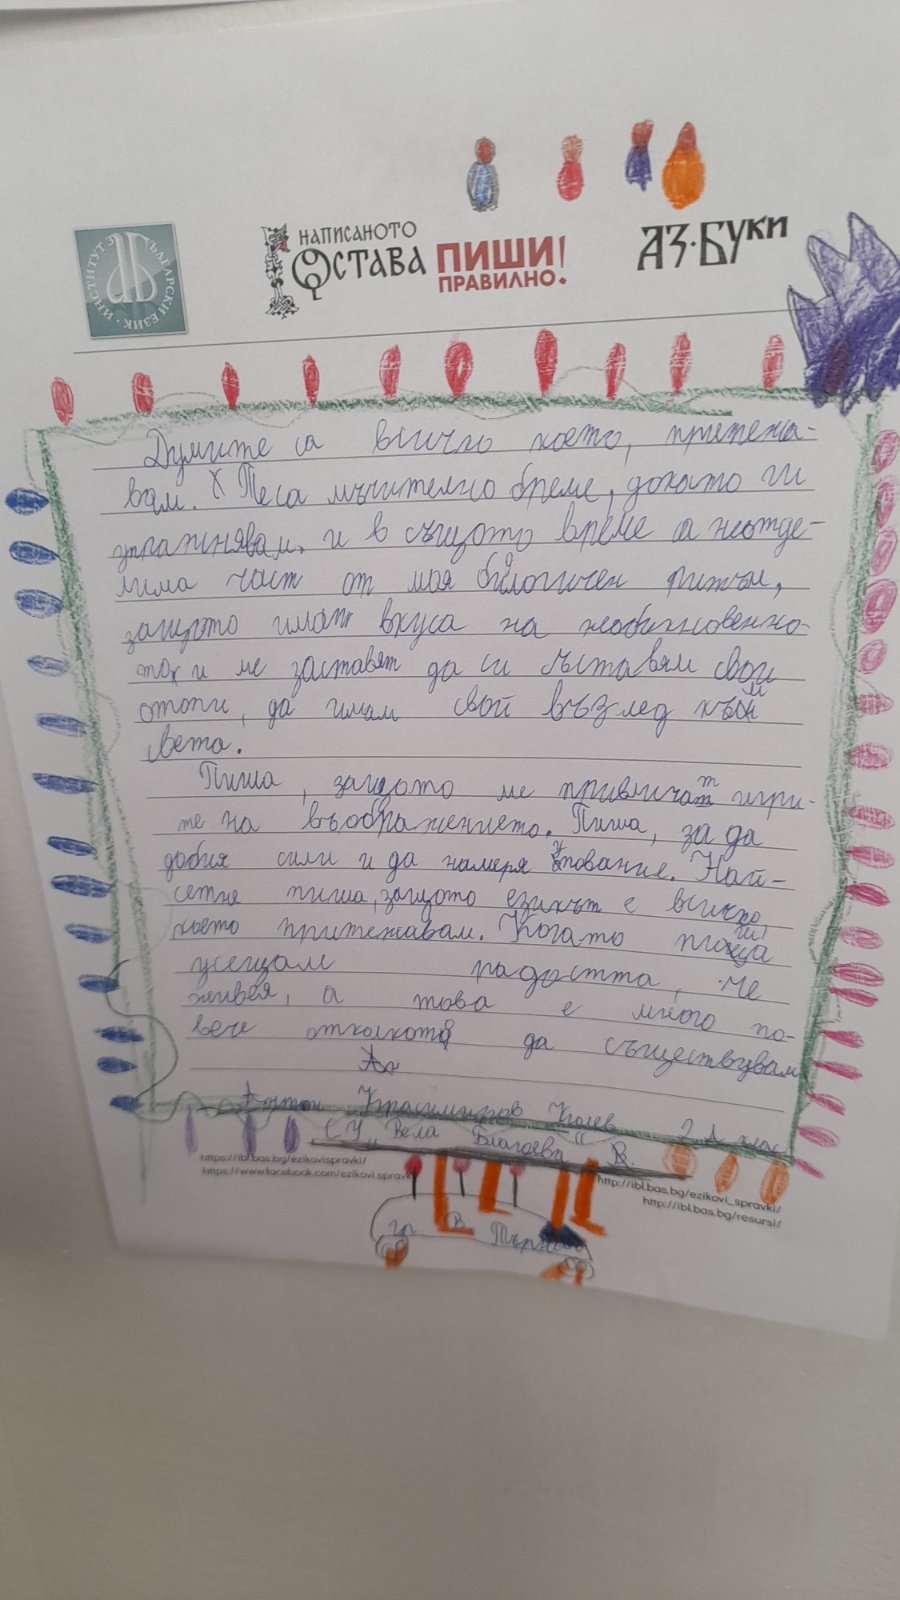 ИНСТИТУТ ЗА БЪЛГАРСКИ ЕЗИК
НАПИСАНОТО
ОСТАВА
ПИШИ
ПРАВИЛНО!
АЗ·БУКИ
Думите са всичко което, притежа-
вам. Те са мъчително бреме, докато ги
упражнявам. и в същото време са неотде-
лима част от моя биологичен ритъм,
защото имат вкуса на необикновенно-
то и ме заставят да си съставям свои
опоти, да имам свой възглед към
света.
Пиша, защото ме привличат игри-
те на въображението. Пиша, за да
добия сили и да намеря упование. Най-
сетне пиша, защото езикът е всичко
което притежавам. Когато пиша
усещам радостта, че
живея, а това е много по-
вече отколкото да съществувам
Антон Красимиров Колев 2 А клас
СУ „Вела Благоева" В.
https://ibl.bas.bg/ezikovispravki/
https://www.facebook.com/ezikovi.spravki
http://ibl.bas.bg/ezikovi_spravki/
http://ibl.bas.bg/resursi/
гр В. Търново